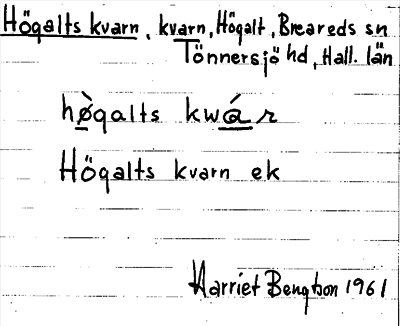 Högalts kvarn, kvarn, Högalt, Breareds sn
Tönnersjö hd, Hall. län
hø̀galts kwár
Högalts kvarn ek
Harriet Bengtson 1961